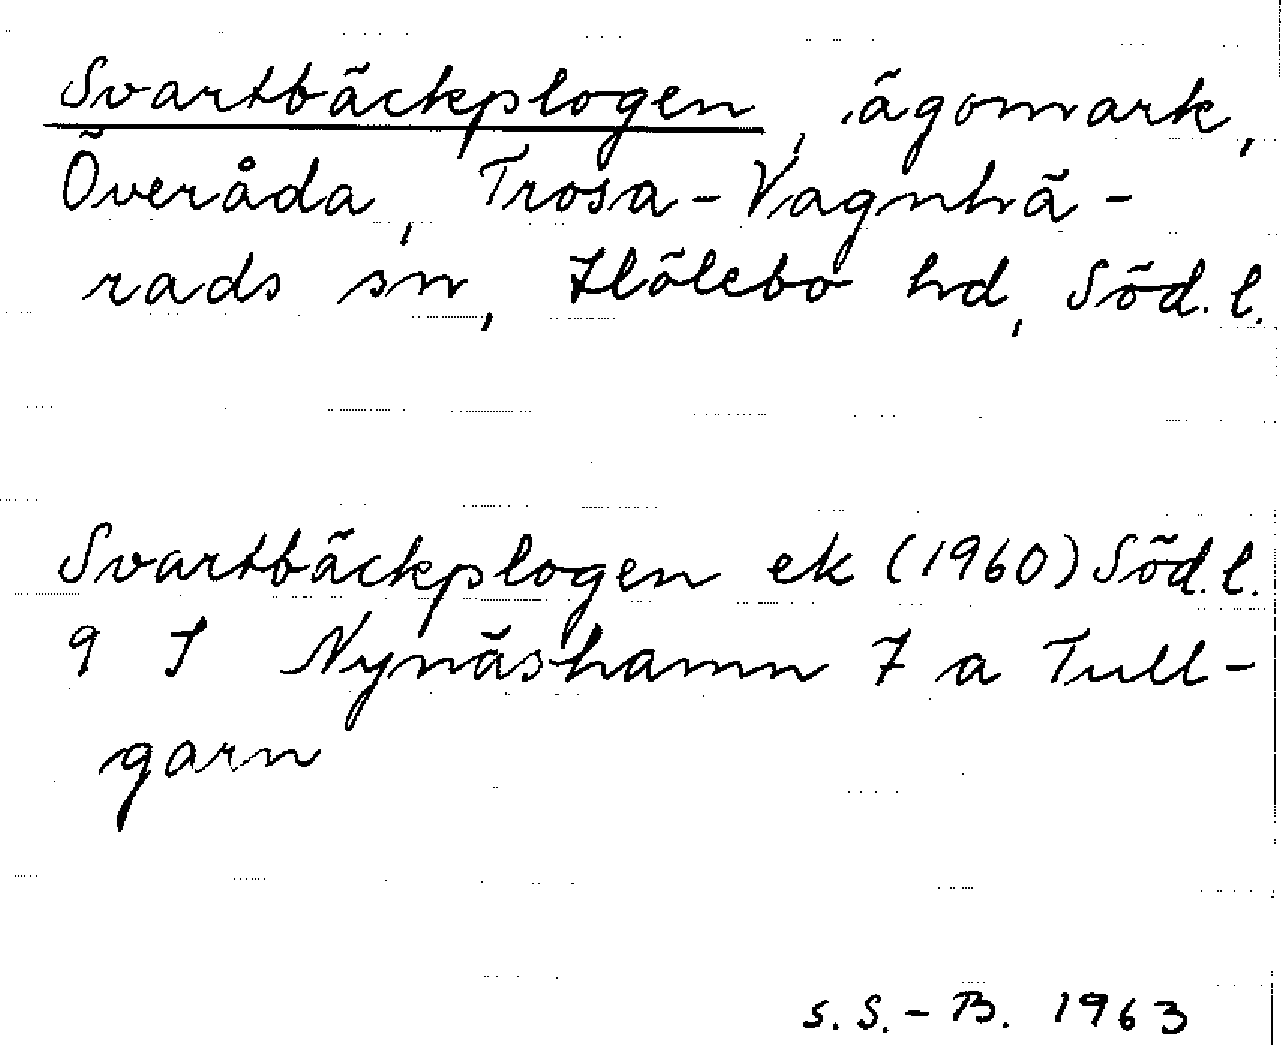 Svartbäckplogen, ägomark,
Överåda, Trosa-Vagnhä-
rads sn, Hölebo hd, Söd. l.
Svartbäckplogen ek (1960) Söd. l.
9 I Nynäshamn 7 a Tull-
garn
S. S.-B. 1963